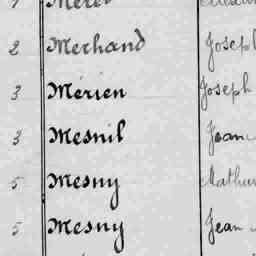 2 Merhand Joseph
3 Mérien Joseph
3 Mesnil Jean
5 Mesny Mathur
5 Mesny Jean